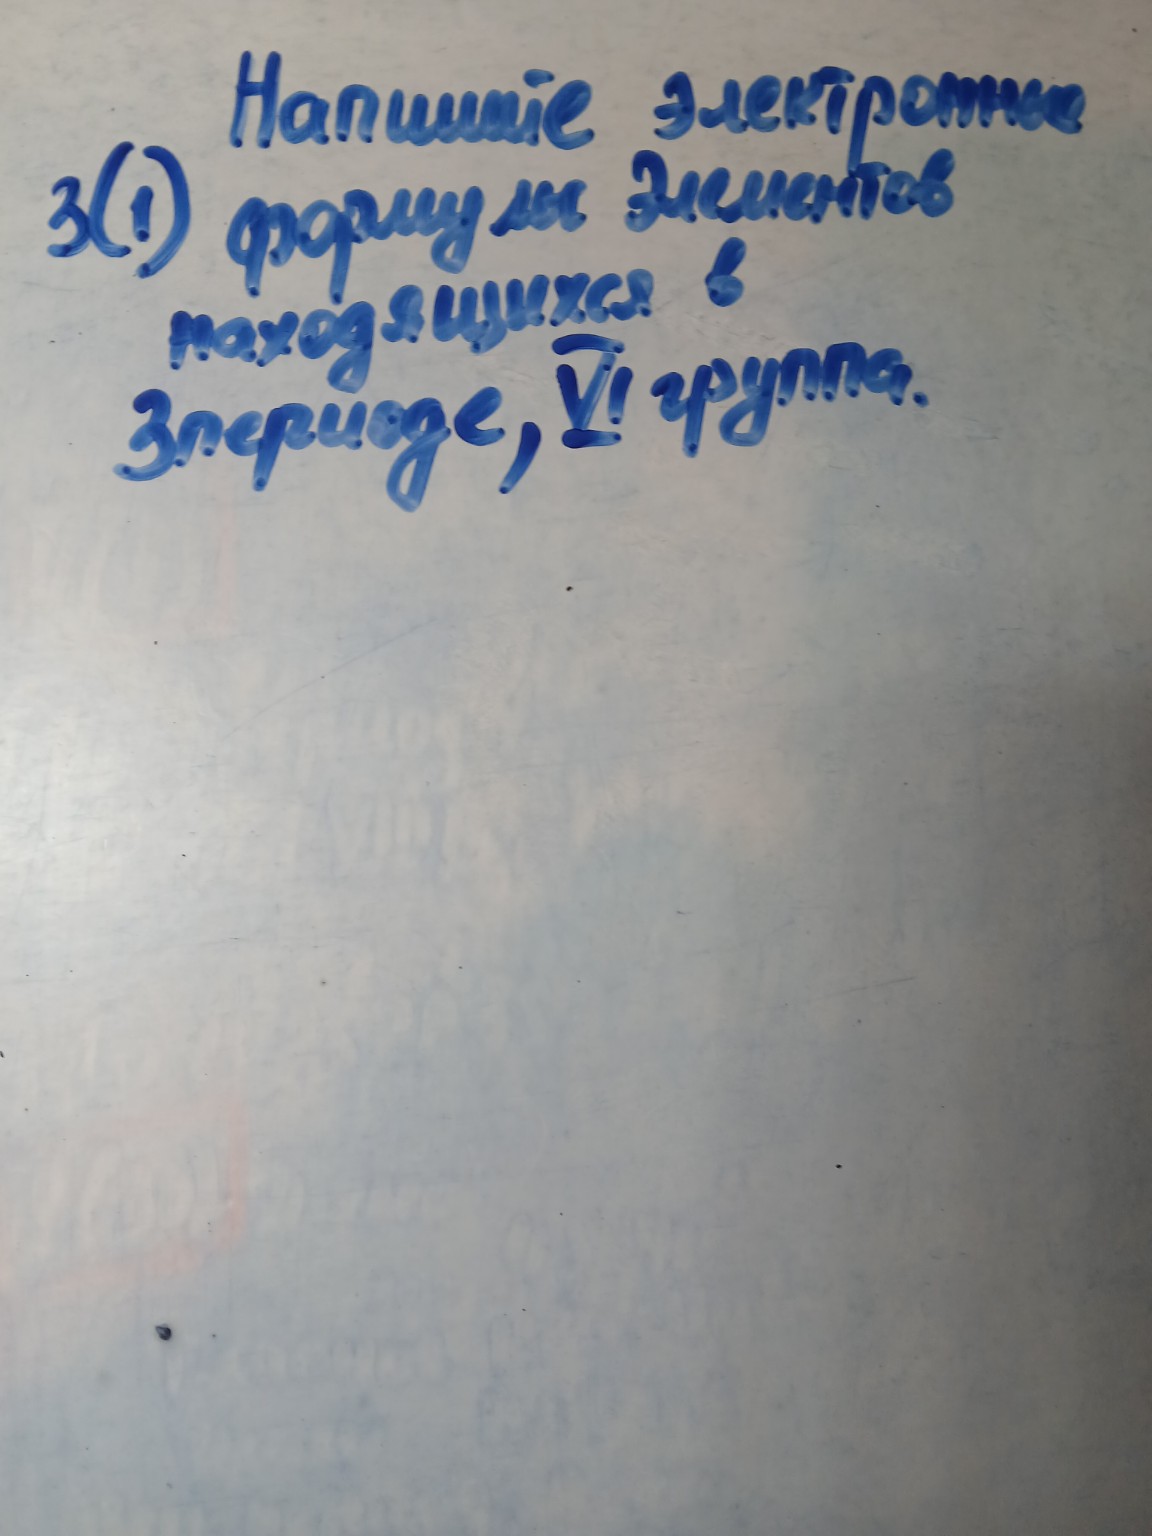 Напишите электронные
3(1) формулы элементов
находящихся в
3 периоде, VI группа.